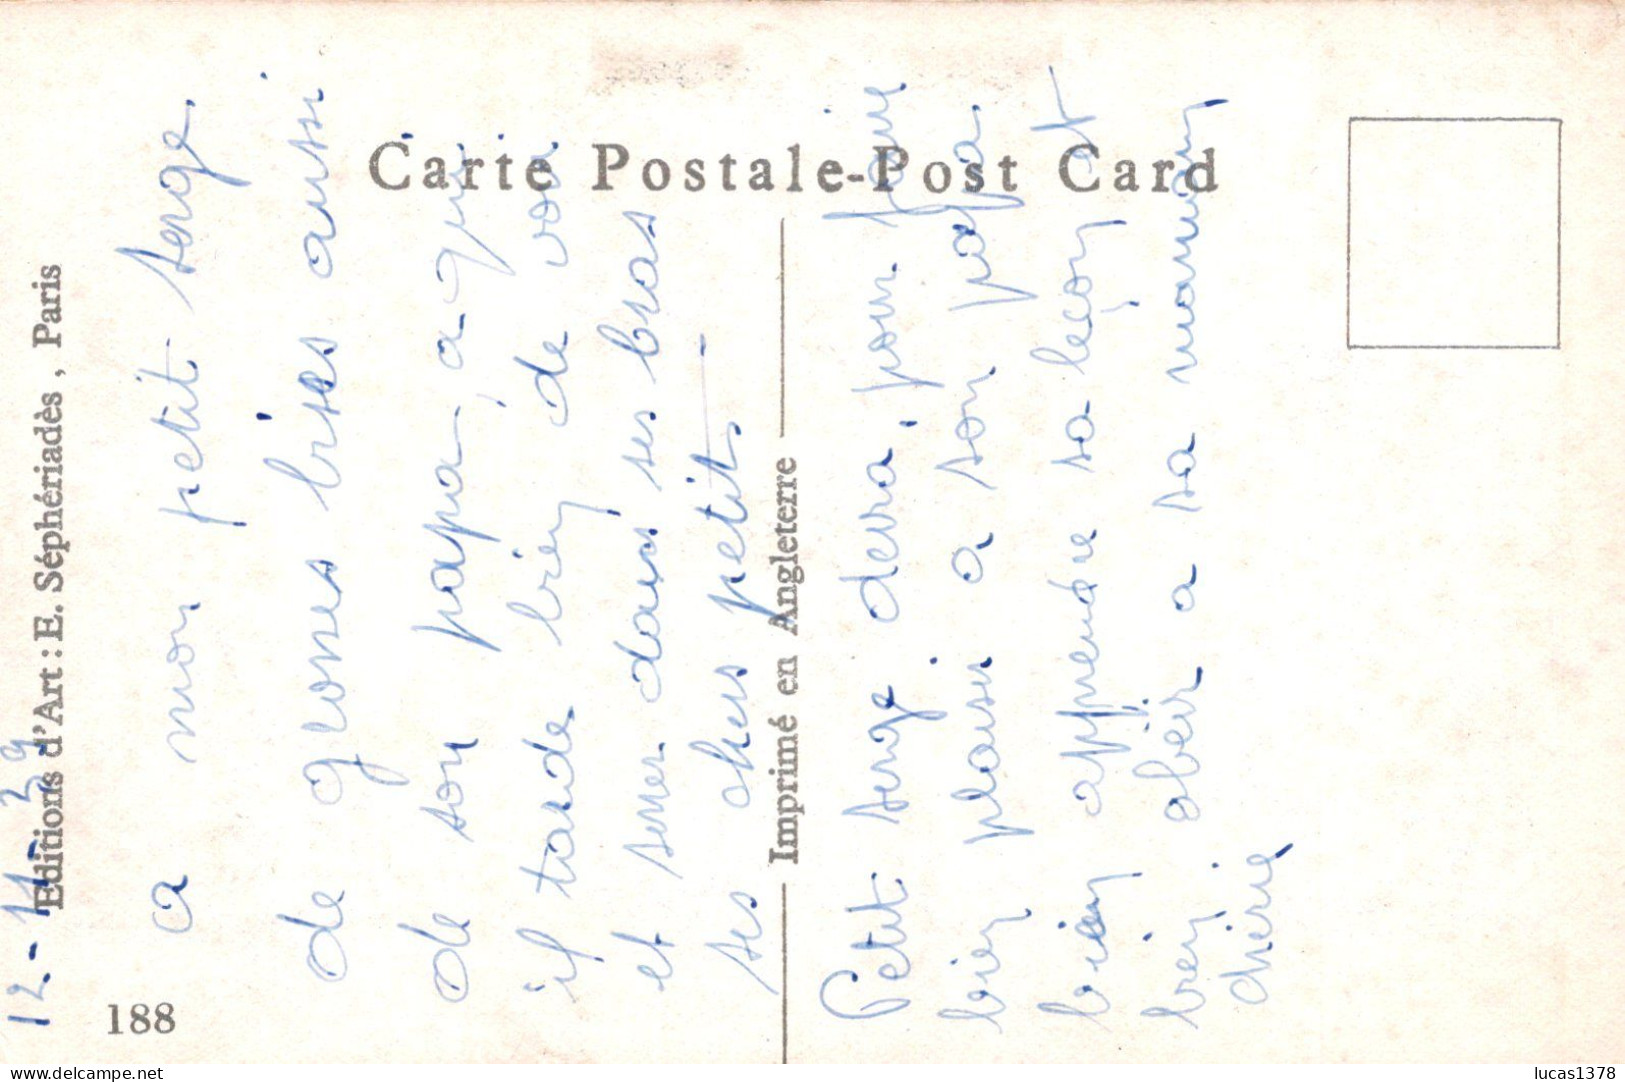 Carte Postale-Post Card
Editions d'Art: E. Séphériadès, Paris
188
Imprimé en Angleterre
12-11-39
a mon petit serge
de grosses bises aussi
de son papa, a qui
il tarde bien de voir
et serrer dans ses bras
ses chers petit.
Petit serge devra, pour faire
bien plaisir a son papa
bien apprendre sa leçon et
bien obéir a sa maman
chérie
delcampe.net
lucas1378